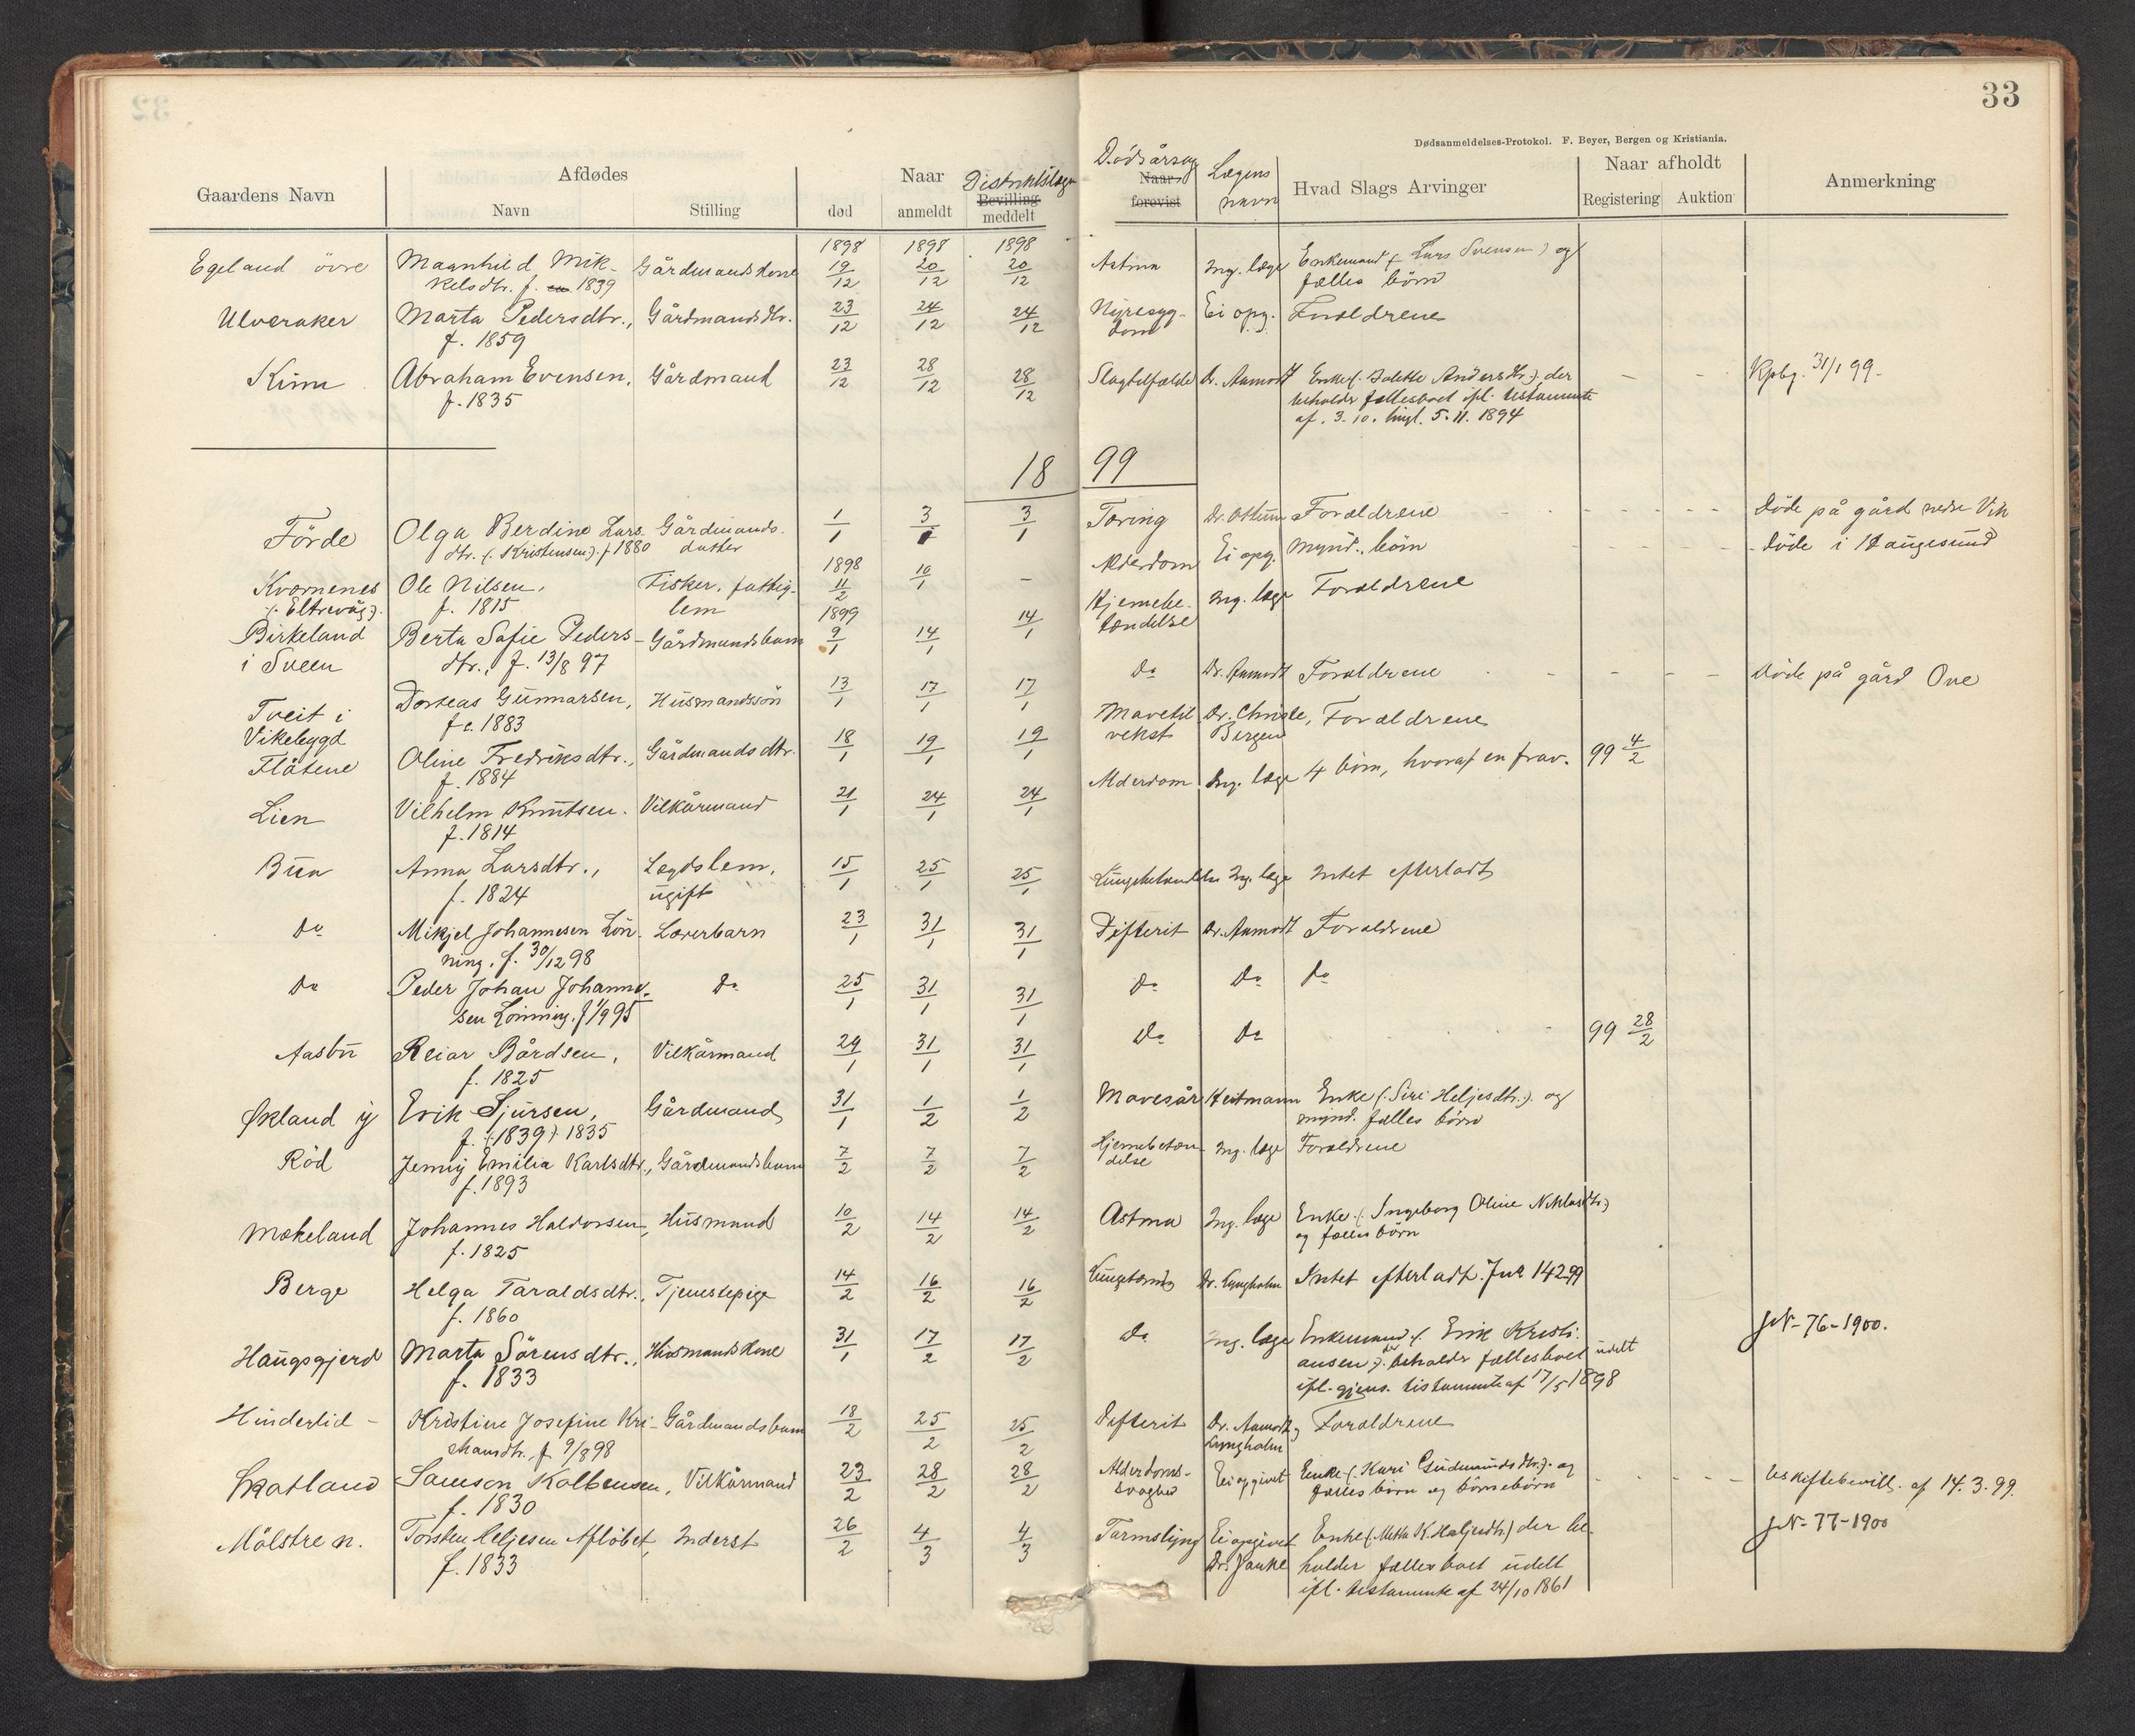 33
Dødsanmeldelses-Protokol. F. Beyer, Bergen og Kristiania.
Gaardens Navn
Afdødes
Navn
Stilling
Naar
død
anmeldt
Distriktslæge
Bevilling
meddelt
Dødsårsag
Naar
forevist
Lægens
navn
Hvad Slags Arvinger
Naar afholdt
Registering
Auktion
Anmerkning
1898 1898 1898
Egeland övre Magnhild Mik- Gårdmandskone 19/12 20/12 20/12 Astma Ing. læge Enkemand (: Lars Svensen :) og
kelsdtr. f. 1839 fælles börn
Ulveraker Marta Pedersdtr., Gårdmandsdtr. 23/12 24/12 24/12 Nyresyg- Ei opg. Forældrene
f. 1859 dom
Kinn Abraham Evensen, Gårdmand 23/12 28/12 28/12 Slagtilfælde Dr. Aamodt Enke (: Andersdtr. :) der - - Kpbg. 31/1 99.
f. 1835 beholdr fællesboet ifl. testamente
af 3. 10. tingl. 5. 11. 1894
1899
Förde Olga Berdine Lars- Gårdmands- 1/1 3/1 3/1 Tæring Forældrene Döde på gård nedre Vik
dtr. (: Kristensen :) f 1880 datter
1898
Kværnenes Ole Nilsen, Fisker, fattig- 11/2 10/1 - Alderdom Ei opg. Mynd. börn Döde i Haugesund
(: Eltrevåg :) f. 1815 lem
1899
Birkeland Berta Sofie Peders- Gårdmandsbarn 9/1 14/1 14/1 Hjernebe- Ing. læge Forældrene
i Sveen dtr., f. 13/8 97 tændelse
Tveit i Gunnarsen, Husmandssön 13/1 17/1 17/1 Do Dr. Aamodt Forældrene Döde på gård
Vikebygd f. c. 1883
Flåtene Oline Fredriksdtr., Gårdmandsdtr. 18/1 19/1 19/1 Mavetil- Dr. Christe, Forældrene
f. 1884 vekst Bergen
Lien Vilhelm Knutsen. Vilkårmand 21/1 24/1 24/1 Alderdom Ing. læge 4 börn, hvoraf en frav. 99 4/2
f. 1814
Bua Anna Larsdtr., Lægdslem, 15/1 25/1 25/1 Ing. læge Intet efterladt
f. 1824 ugift
Do Mikjel Johannesen Lön- Lærerbarn 23/1 31/1 31/1 Difterit Dr. Aamodt Forældrene
ning, f. 30/12 98
Do Peder Johan Johanne- Do 25/1 31/1 31/1 Do Do Do
sen Lönning, f 1/9 95
Aasbu Reiar Bårdsen, Vilkårmand 29/1 31/1 31/1 Do Do 99 28/2
f. 1825
Økland y Erik Sjursen, Gårdmand 31/1 1/2 1/2 Mavesår Heitmann Enke (: Siri Heljesdtr. :) og
f. (: 1839 :) 1835 mynd. fælles börn
Röd Jenny Emilia Karlsdtr., Gårdmandsbarn 7/2 7/2 7/2 Hjernebetæn- Ing. læge Forældrene
f. 1893 delse
Mækeland Johannes Haldorsen, Husmand 10/2 14/2 14/2 Astma Ing. læge Enke (: Ingeborg Oline Niklasdtr. :)
f. 1825 og fælles börn
Berge Helga Taraldsdtr., Tjenestepige 14/2 16/2 16/2 Dr. Lyngholm Intet efterladt. 142-99
f. 1860
Haugsgjerd Marta Sörensdtr., Husmandskone 31/1 17/2 17/2 Do Ing. læge Enkemand (: Erik Kristi- JN- 76-1900.
f. 1833 ansen :) der beholdr fællesboet udelt
ifl. gjens. testamente af 17/5 1898
Hinderlid - Kristine Josefine Kri- Gårdmandsbarn 18/2 25/2 25/2 Difterit Dr. Aamodt og Forældrene
stiansdtr. f 9/8 98 Lyngholm
Skatland Samson Kolbensen, Vilkårmand 23/2 28/2 28/2 Alderdoms- Ei opgivet Enke (: Kari Gudmundsdtr. :) og Uskiftebevill. af 14. 3. 99.
f. 1830 svaghed fælles börn og börnebörn
Mölstre n. Torsten Heljesen Aflöbet, Inderst 26/2 4/3 4/3 Tarmslyng Ei opgivet Enke (: Metta K. Haljesdtr. :) der be- JN- 77-1900
f. 1833 Dr. Janke holder fællesboet udelt
ifl. testamente af 24/10 1861